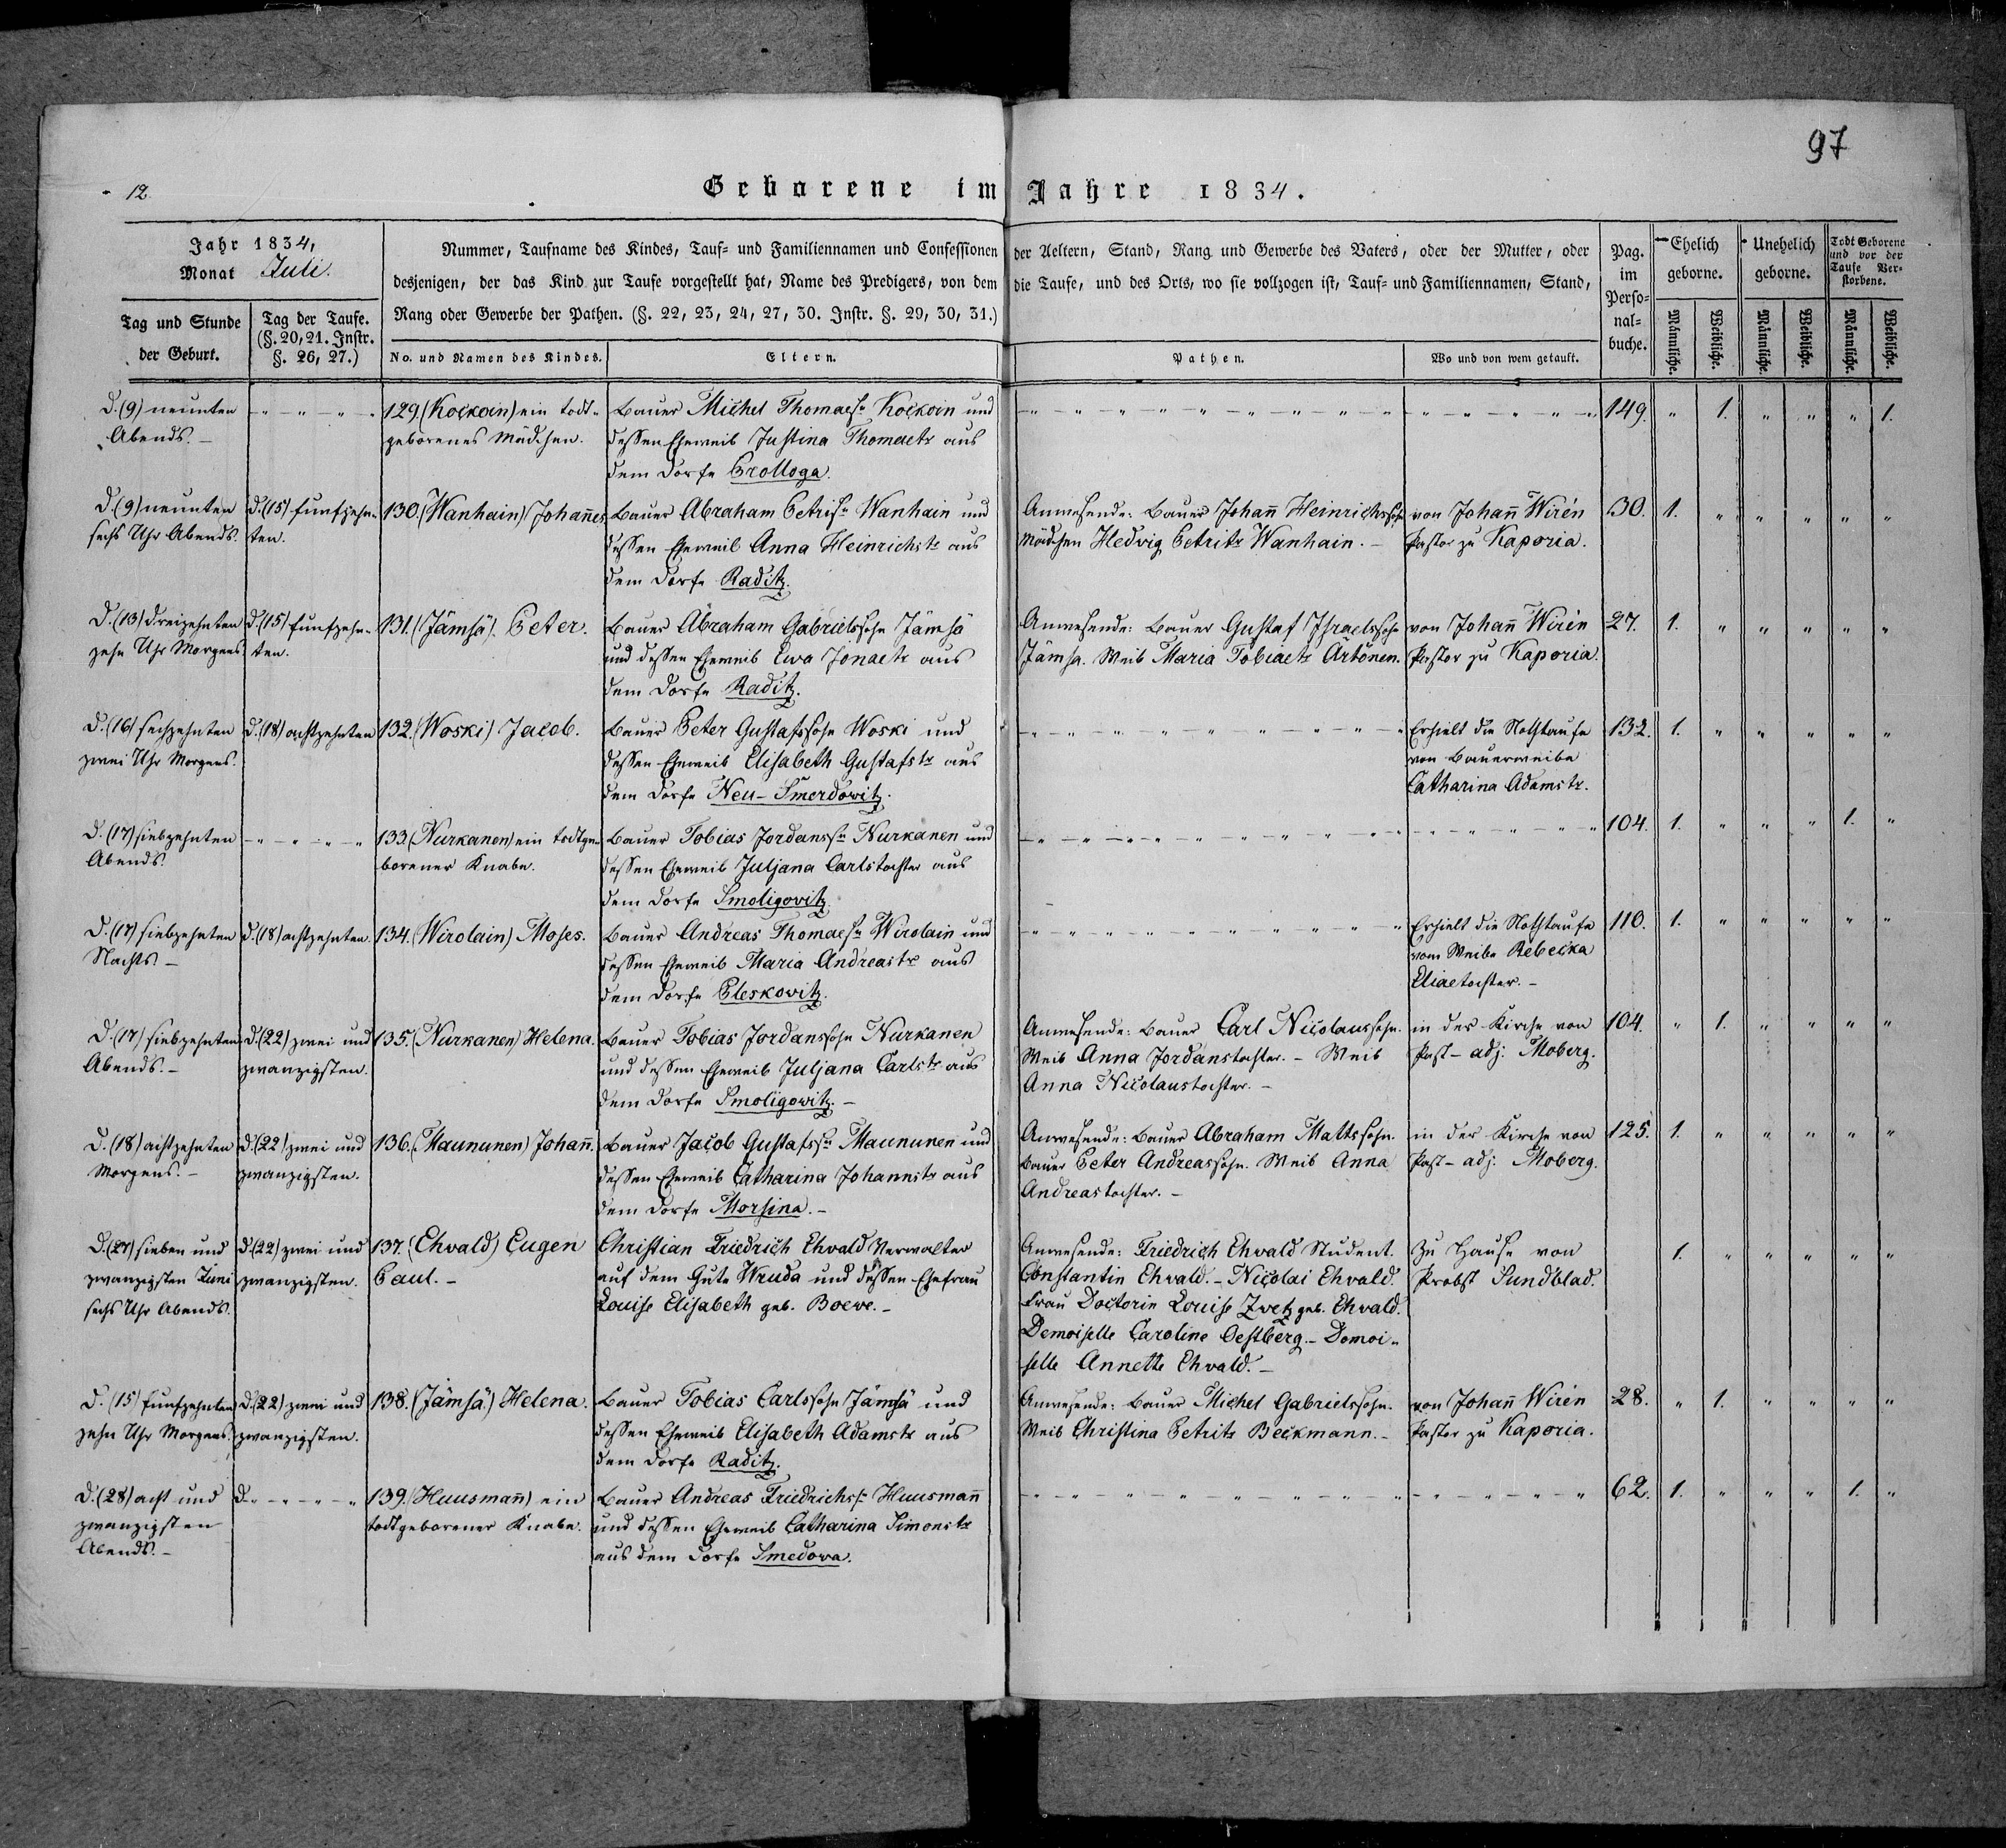 97
12.
Geborene im Jahre 1834.
Jahr 1834,
Monat Juli.
Tag und Stunde
der Geburt.
Tag der Taufe.
(§. 20, 21. Instr.
§. 26, 27.)
Nummer, Taufname des Kindes, Tauf- und Familiennamen und Confessionen der Aeltern, Stand, Rang und Gewerbe des Vaters, oder der Mutter, oder
desjenigen, der das Kind zur Taufe vorgestellt hat, Name des Predigers, von dem die Taufe, und des Orts, wo sie vollzogen ist, Tauf- und Familiennamen, Stand,
Rang oder Gewerbe der Pathen. (§. 22, 23, 24, 27, 30. Instr. §. 29, 30, 31.)
No. und Namen des Kindes.
Eltern.
Pathen.
Wo und von wem getauft.
Pag.
im
Perso-
nal-
buche.
Ehelich
geborne.
Unehelich
geborne.
Todt Geborene
und vor der
Taufe Ver-
storbene.
Männliche.
Weibliche.
Männliche.
Weibliche.
Männliche.
Weibliche.
D. (9) neunten
Abends. –
" – " – " – "
129. (Kockoin) ein todt-
geborenes Mädchen.
Bauer Michel Thomaesn Kockoin und
dessen Eheweib Justina Thomaetr aus
dem Dorfe Prolloga.
149. " 1. " " " 1.
D. (9) neunten
sechs Uhr Abends.
d. (15) funfzehn-
ten.
130. (Wanhain) Johannes
Bauer Abraham Petrisn Wanhain und
dessen Eheweib Anna Heinrichstr aus
dem Dorfe Raditz.
Anwesende: Bauer Johann Heinrichssohn
Mädchen Hedvig Petritr Wanhain. –
von Johann Wirén
Pastor zu Kaporia.
30. 1. " " " " "
D. (13) dreizehnten
zehn Uhr Morgens
d. (15) funfzehn-
ten.
131. (Jämsä). Peter.
Bauer Abraham Gabrielssohn Jämsä
und dessen Eheweib Ewa Jonaetr aus
dem Dorfe Raditz.
Anwesende: Bauer Gustaf Israelssohn
Jämsa. Weib Maria Tobiaetr Ärtönen.
von Johann Wirén
Pastor zu Kaporia.
27. 1. " " " " "
D. (16) sechzehnten
zwei Uhr Morgens.
d. (18) achtzehnten
132. (Woski) Jacob.
Bauer Peter Gustafssohn Woski und
dessen Eheweib Elisabeth Gustafstr aus
dem Dorfe Neu-Smerdowitz.
Erhielt die Nothtaufe
von Bauerweibe
Catharina Adamstr.
132. 1. " " " " "
D. (17) siebzehnten
Abends.
" – " – " – "
133. (Nurkanen) ein todtge-
borener Knabe.
Bauer Tobias Jordanssn Nurkanen und
dessen Eheweib Juljana Carlstochter aus
dem Dorfe Smoligovitz.
104. 1. " " " 1. "
D. (17) siebzehnten
Nachts. –
d. (18) achtzehnten.
134. (Wirolain) Moses.
Bauer Andreas Thomaesn Wirolain und
dessen Eheweib Maria Andreastr aus
dem Dorfe Pleskowitz.
Erhielt die Nothtaufe
vom Weibe Rebecka
Eliaetochter. –
110. 1. " " " " "
D. (17) siebzehnten
Abends. –
d. (22) zwei und
zwanzigsten.
135. (Nurkanen) Helena.
Bauer Tobias Jordanssohn Nurkanen
und dessen Eheweib Juljana Carlstr aus
dem Dorfe Smoligowitz. –
Anwesende: Bauer Carl Nicolaussohn.
Weib Anna Jordanstochter. – Weib
Anna Nicolaustochter. –
in der Kirche von
Past-adj: Moberg.
104. " 1. " " " "
D. (18) achtzehnten
Morgens. –
d. (22) zwei und
zwanzigsten.
136. (Maununen) Johann.
Bauer Jacob Gustafssn Maununen und
dessen Eheweib Catharina Johannistr aus
dem Dorfe Morsina. –
Anwesende: Bauer Abraham Mattssohn.
Bauer Peter Andreassohn. Weib Anna
Andreastochter. –
in der Kirche von
Past-adj: Moberg.
125. 1. " " " " "
D. (27) sieben und
zwanzigsten Juni
sechs Uhr Abends.
d. (22) zwei und
zwanzigsten.
137. (Ehvald) Eugen
Paul. –
Christian Friedrich Ehvald Verwalter
auf dem Gute Wruda und dessen Ehefrau
Louise Elisabeth geb. Boeve. –
Anwesende: Friedrich Ehvald Student.
Constantin Ehvald. – Nicolai Ehvald.
Frau Doctorin Louise Zvetz geb. Ehvald.
Demoiselle Caroline Oestberg. – Demoi-
selle Annette Ehvald. –
Zu Hause von
Probst Sundblad.
1. " " " " "
D. (15) funfzehnten
zehn Uhr Morgens.
d. (22) zwei und
zwanzigsten.
138. (Jämsä.) Helena.
Bauer Tobias Carlssohn Jämsä und
dessen Eheweib Elisabeth Adamstr aus
dem Dorfe Raditz.
Anwesende: Bauer Michel Gabrielssohn.
Weib Christina Petritr Beckmann. –
von Johann Wirén
Pastor zu Kaporia.
28. " 1. " " " "
D. (28) acht und
zwanzigsten
Abends. –
d. " – " – " – "
139. (Huusmann) ein
todtgeborener Knabe.
Bauer Andreas Friedrichss. Huusmann
und dessen Eheweib Catharina Simonstr
aus dem Dorfe Smedova.
62. 1. " " " 1. "